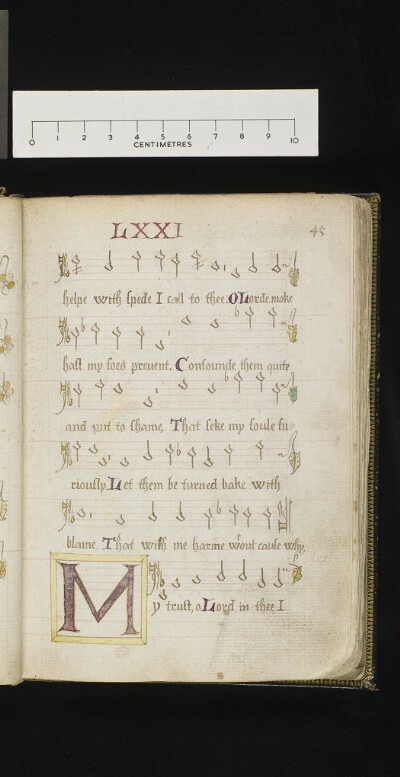 0 1 2 3 4 5 6 7 8 9 10
CENTIMETRES
LXXI 45
helpe with spede I call to thee. O Lorde make
hast my foes prevent. Consounde them quite
and put to shame, That seke my soule fu
riously. Let them be turned bake with
blame. That wish me harme wout cause why,
M
y trust, o Lord in thee I